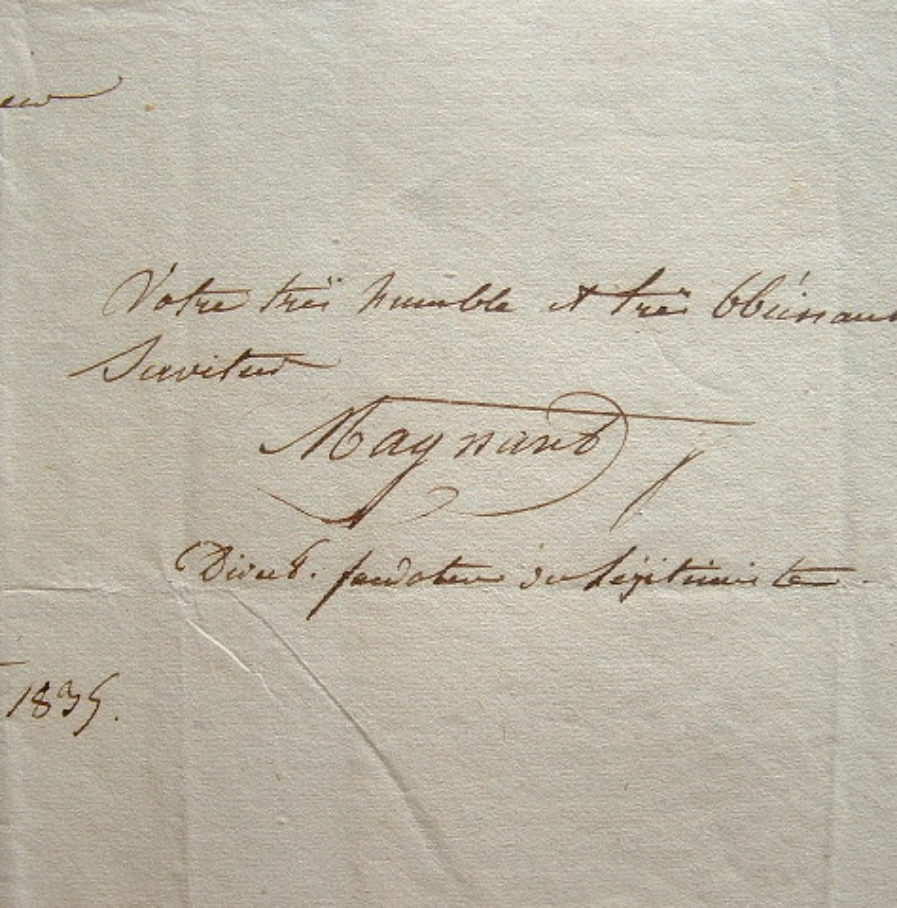 Votre très humble et très Obéissant
Serviteur
Magnant
Direct. fondateur du Légitimiste.
1835.